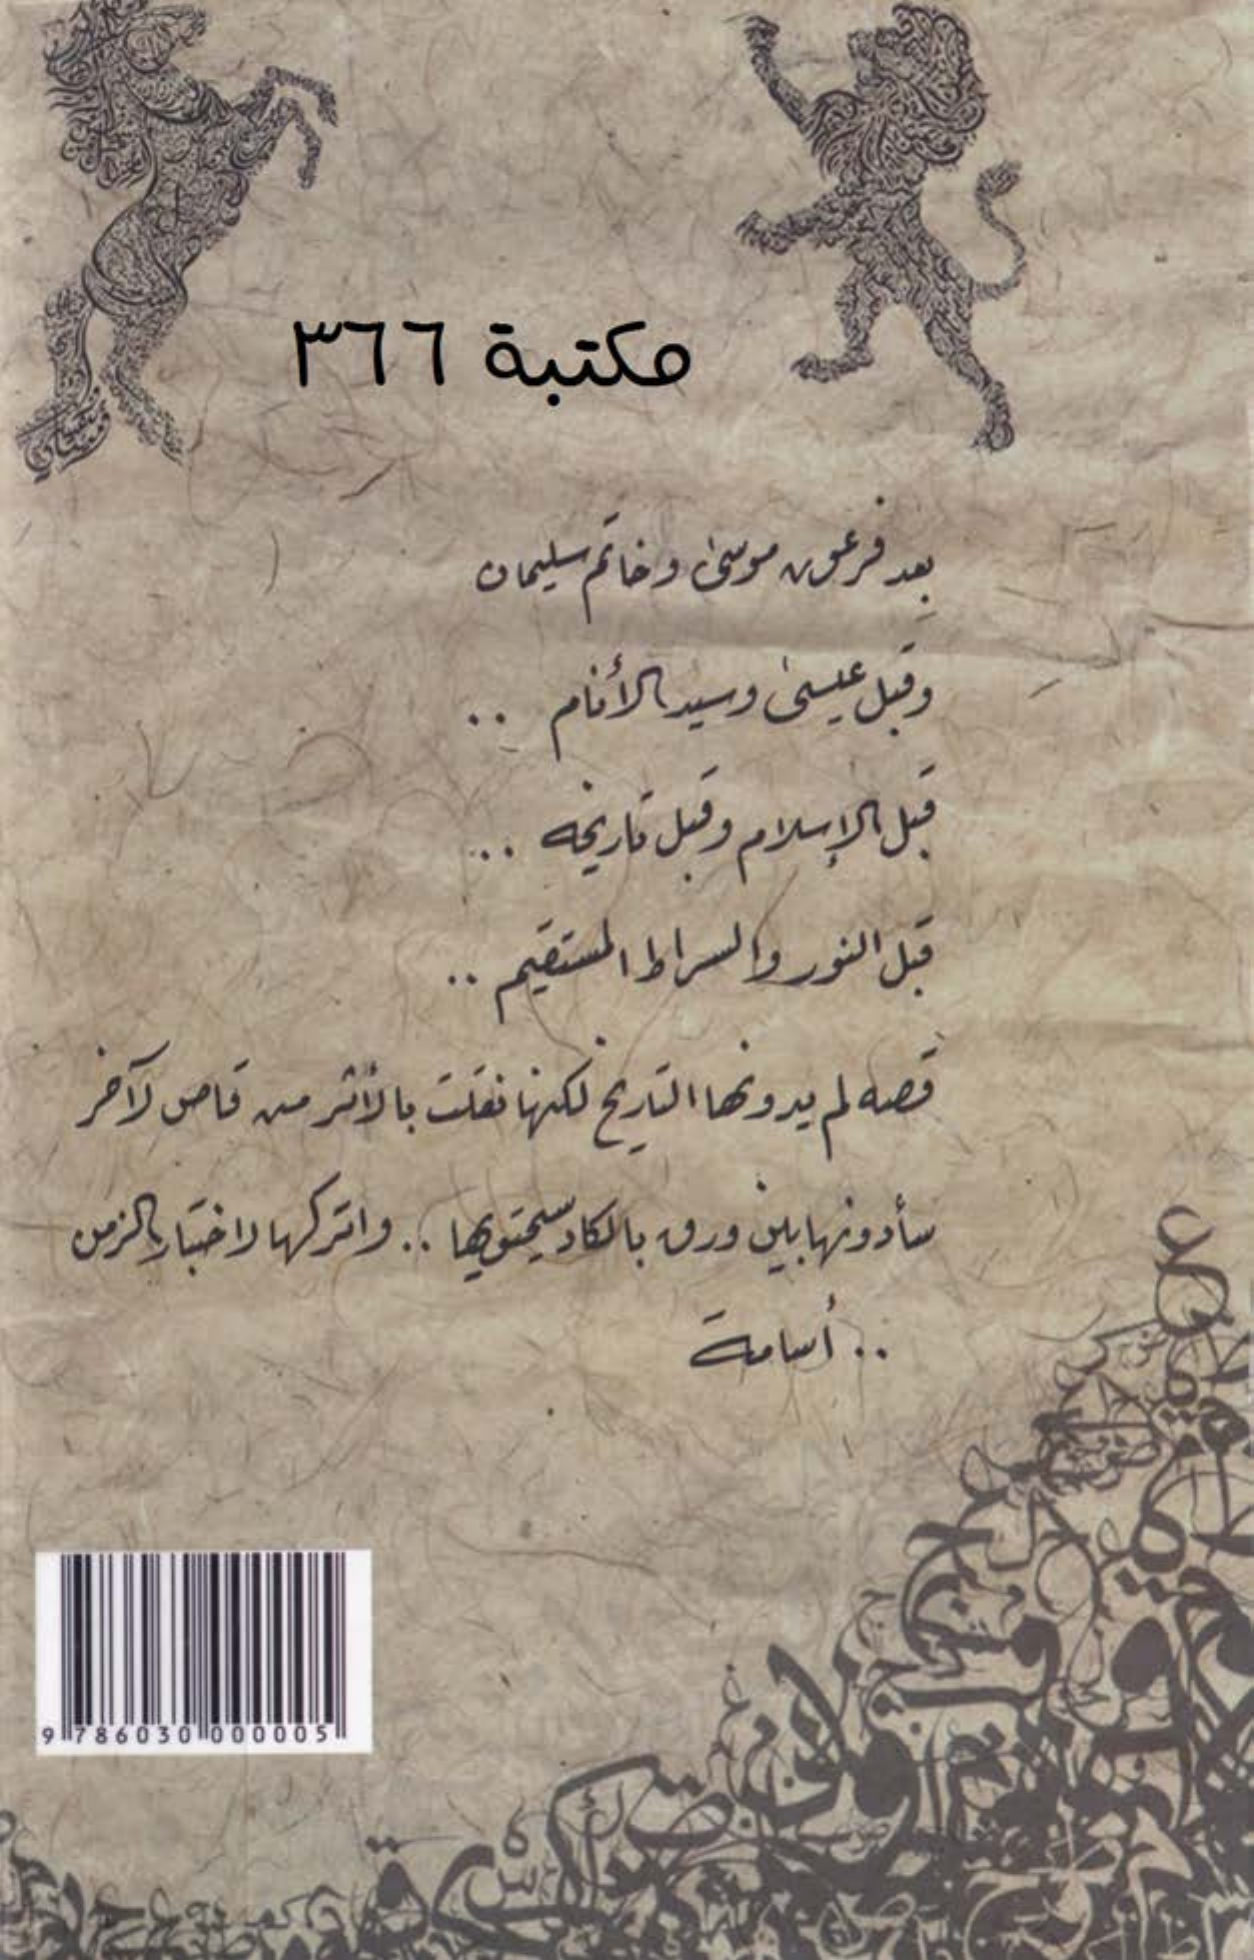 مكتبة ٣٦٦
بعد فرعون موسىٰ وخاتم سليمان
وقبل عيسىٰ وسيد الأنام ..
قبل الإسلام وقبل تاريخه ..
قبل النور والسراط المستقيم ..
قصه لم يدونها التاريخ لكنها نقلت بالأثر من قاص لآخر
سأدونها بين ورق بالكاد سيحتويها .. واتركها لاختبار الزمن
.. أسامة
9 786030 000005